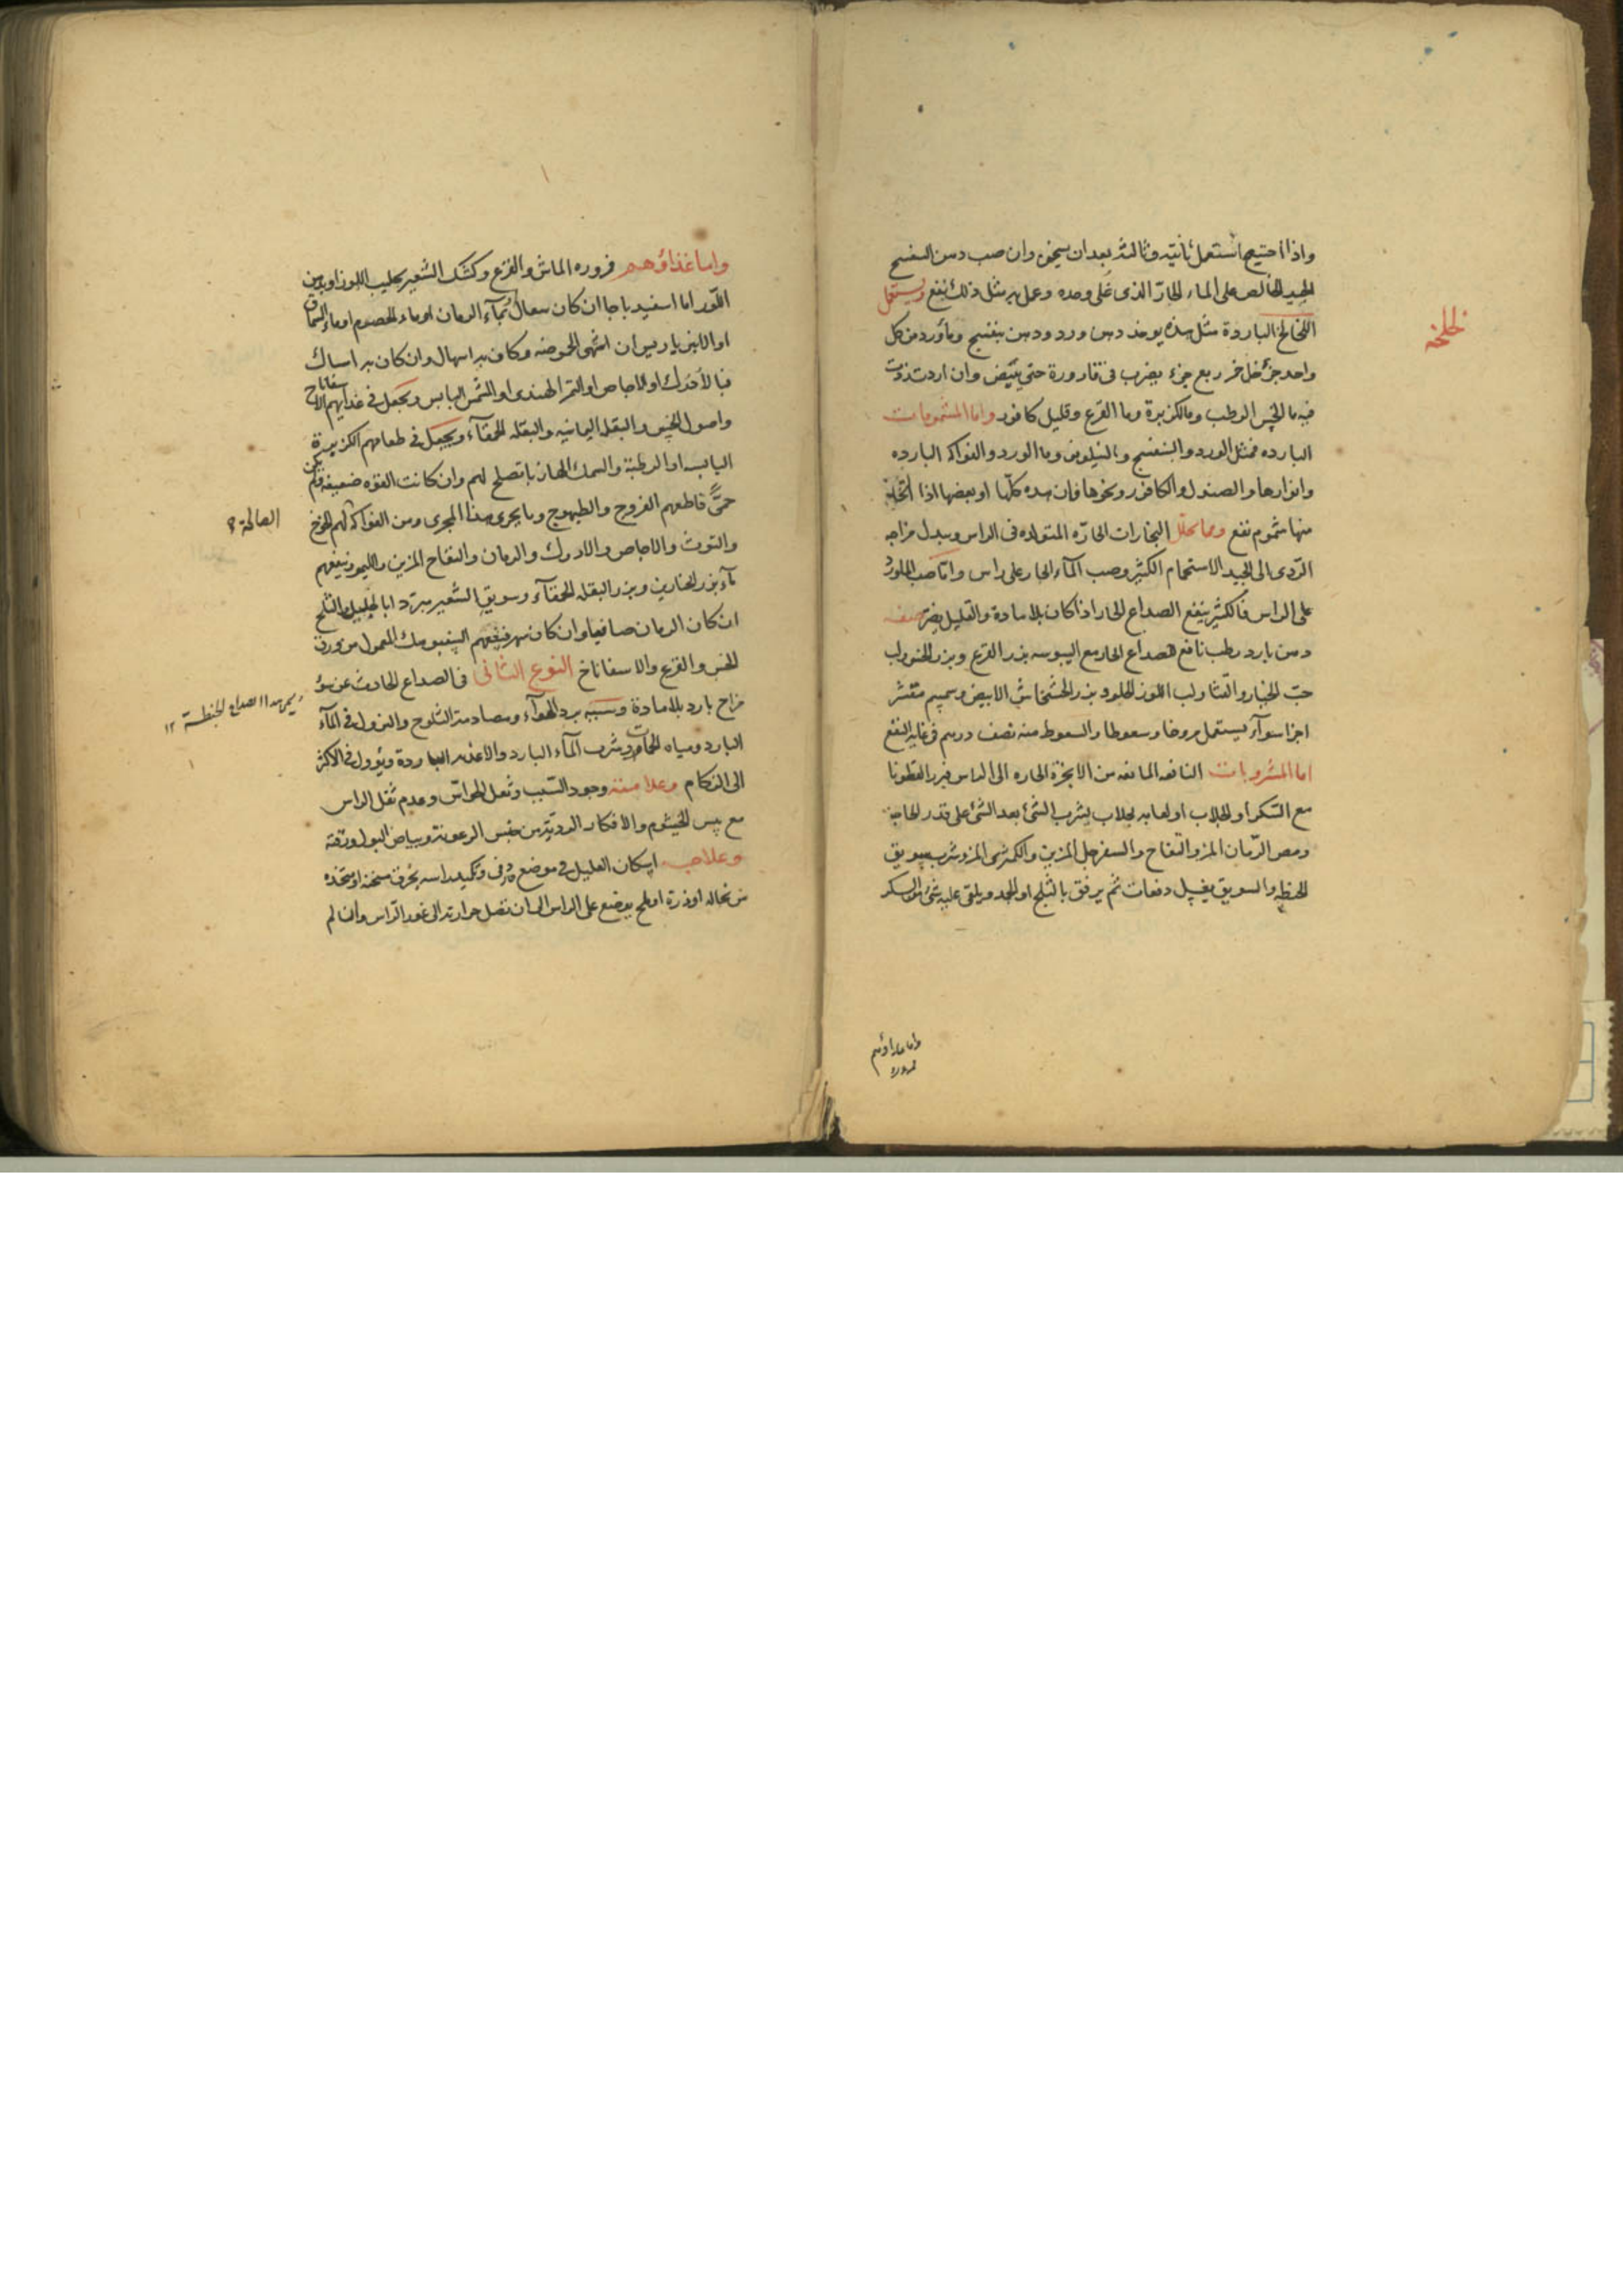 واذا احتيج استعمل ثانية وثالثة بعد ان يسخن وان صب دهن البنفسج
الجيد الخالص على الماء الحار الذى غلى وحده وعمل به مثل ذلك نفع ويستعمل
لخلخه
اللخالخ الباردة مثل هذه يوخذ دهن ورد ودهن بنفسج وماورد من كل
واحد جزء خل خمر ربع جزء يضرب فى قارورة حتى يبيض وان اردت زدت
فيه ما الخس الرطب وما الكزبرة وما القرع وقليل كافور واما المشمومات
البارده فمثل الورد والبنفسج والنيلوفر وما الورد والفواكه البارده
وانوارها والصندل والكافور ونحوها فان هذه كلها او بعضها اذا اتخذ
منها شموم نفع ومما يحلل البخارات الحارّه المتولده فى الراس ويبدل مزاجه
الردى الى الجيد الاستحمام الكثير وصب المآء الحار على راس واما صب الماورد
على الراس فالكثير ينفع الصداع الحار اذا كان بلا مادة والقليل يضر صفه
دهن بارد رطب نافع لصداع الحار مع اليبوسه بزر القرع وبزر الخس ولب
حب الخيار والقثا ولب اللوز الحلو وبزر الخشخاش الابيض وسمسم مقشر
اجزا سوآء يستعمل مروخا وسعوطا والسعوط منه نصف درهم فى غاية النفع
اما المشروبات النافعه المانعه من الابخرة الحاره الى الراس فبزر القطونا
مع السكر او الجلاب او لعابه بجلاب يشرب الشئ بعد الشئ على قدر الحاجة
ومص الرّمان المز والتفاح والسفرجل المزين والكمثرى المز وشرب سويق
الحنطه والسويق يغسل دفعات ثم يرفق بالثلج او الجمد ويلقى عليه شئ من السكر
واما غذاؤهم
فزوره
واما غذاؤهم فزوره الماش والقرع وكشك الشعير بحليب اللوز او بدهن
اللوز اما اسفيدباجا ان كان سعال او بمآء الرمان او ماء الحصرم او ماء السماق
او الانبرباريس ان اشتهى الحموضه وكان به اسهال وان كان به امساك
فبالآدرك او الاجاص او التمر الهندى او المشمش اليابس ويجعل فى غذايهم الاسفاناخ
واصول الخس والبقله اليمانيه والبقله الحمقآء ويجعل فى طعامهم الكزبرة
اليابسه او الرطبة والسمك الهازبا تصلح لهم وان كانت القوه ضعيفه ولم يكن
حمّى فاطعمهم الفروج والطيهوج وما يجرى هذا المجرى ومن الفواكه لهم الخوخ
الصالحة
والتوث والاجاص والادرك والرمان والتفاح المزين والليمو وينفعهم
مآء بزر الخيارين وبزر البقله الحمقآء وسويق الشعير مبرّد
الخس والقرع والاسفاناخ النوع الثانى فى الصداع الحادث عن سؤ
مزاج بارد بلا مادة وسببه برد الهوآء ومصادمة الثلوج والنزول فى المآء
البارد ومياه الحمآت وشرب المآء البارد والاغذيه الباردة ويؤول فى الاكثر
الى الزكام وعلامته وجود السبب وثقل الحواسّ وعدم ثقل الراس
مع يبس الخيشوم والافكار الرديّة من جنس الرعونة وبياض البول ورقته
وعلاجه اسكان العليل فى موضع دفى وتكميد راسه بخرق مسخنة او متخذه
من نخاله او ذرة او ملح يوضع على الراس الى ان تصل حرارته الى غور الراس وان لم